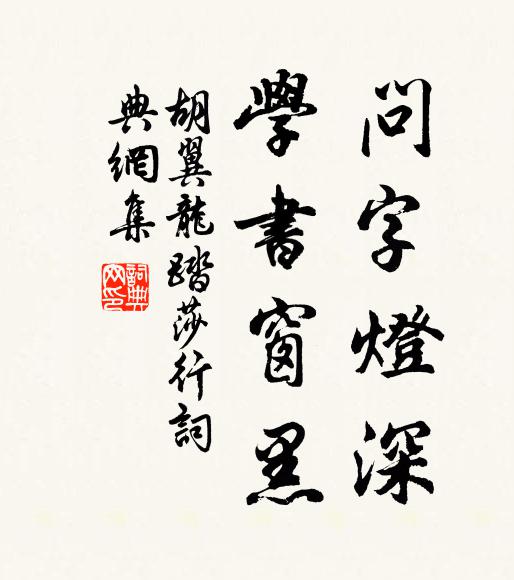 問字燈深
學書窗黑
胡翼龍踏莎行詞
典網集
詞典網印